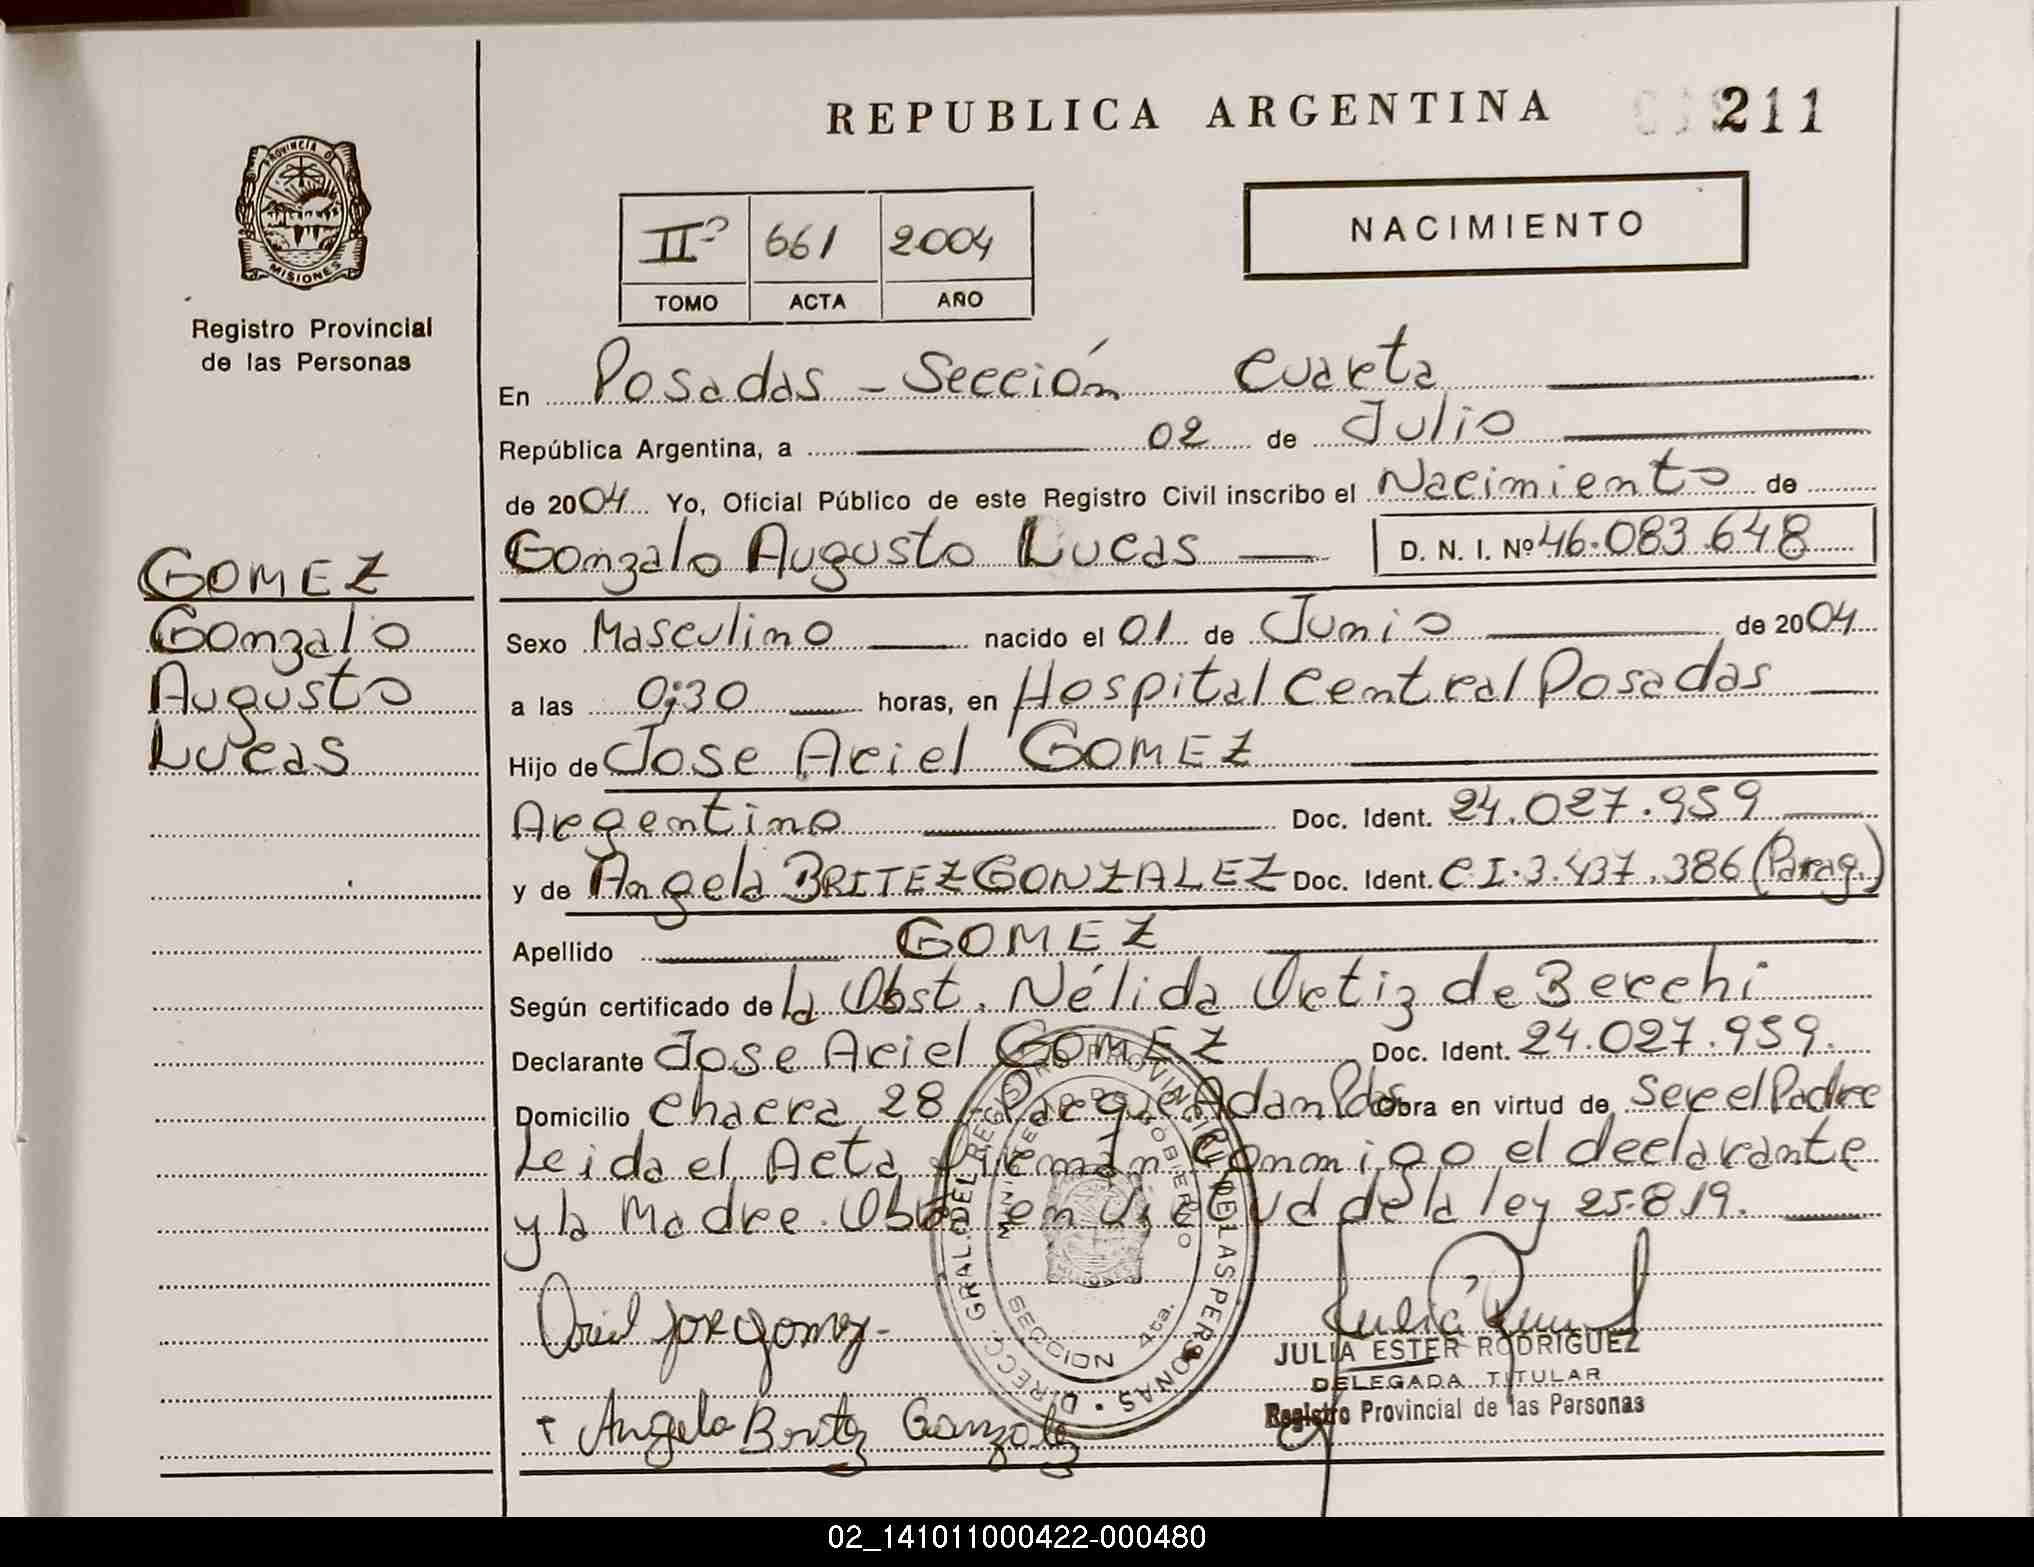 REPUBLICA ARGENTINA 211
PROVINCIA DE
MISIONES
Registro Provincial
de las Personas
NACIMIENTO
IIº 661 2004
TOMO ACTA AÑO
En Posadas - Sección Cuarta
República Argentina, a 02 de Julio
de 2004 Yo, Oficial Público de este Registro Civil inscribo el Nacimiento de
Gonzalo Augusto Lucas D. N. I. Nº 46.083.648
GOMEZ
Gonzalo
Augusto
Lucas
Sexo Masculino nacido el 01 de Junio de 2004
a las 0;30 horas, en Hospital Central Posadas
Hijo de Jose Ariel GOMEZ
Argentino Doc. Ident. 24.027.959
y de Angela BRITEZ GONZALEZ Doc. Ident. C.I.3.437.386 (Parag.)
Apellido GOMEZ
Según certificado de la Obst. Nélida Ortiz de Berchi
Declarante Jose Ariel GOMEZ Doc. Ident. 24.027.959.
Domicilio Chacra 28 - Parque Adam Pdas Obra en virtud de Ser el Padre
Leida el Acta firman Conmigo el declarante
y la Madre. Obra en Virtud de la ley 25.819.
DIRECC. GRAL. DEL REGISTRO PROVINCIAL DE LAS PERSONAS
MINISTERIO DE GOBIERNO
SECCION 4ta.
Ariel Jose Gomez
Angela Britez Gonzalez
JULIA ESTER RODRIGUEZ
DELEGADA TITULAR
Registro Provincial de las Personas
02_141011000422-000480